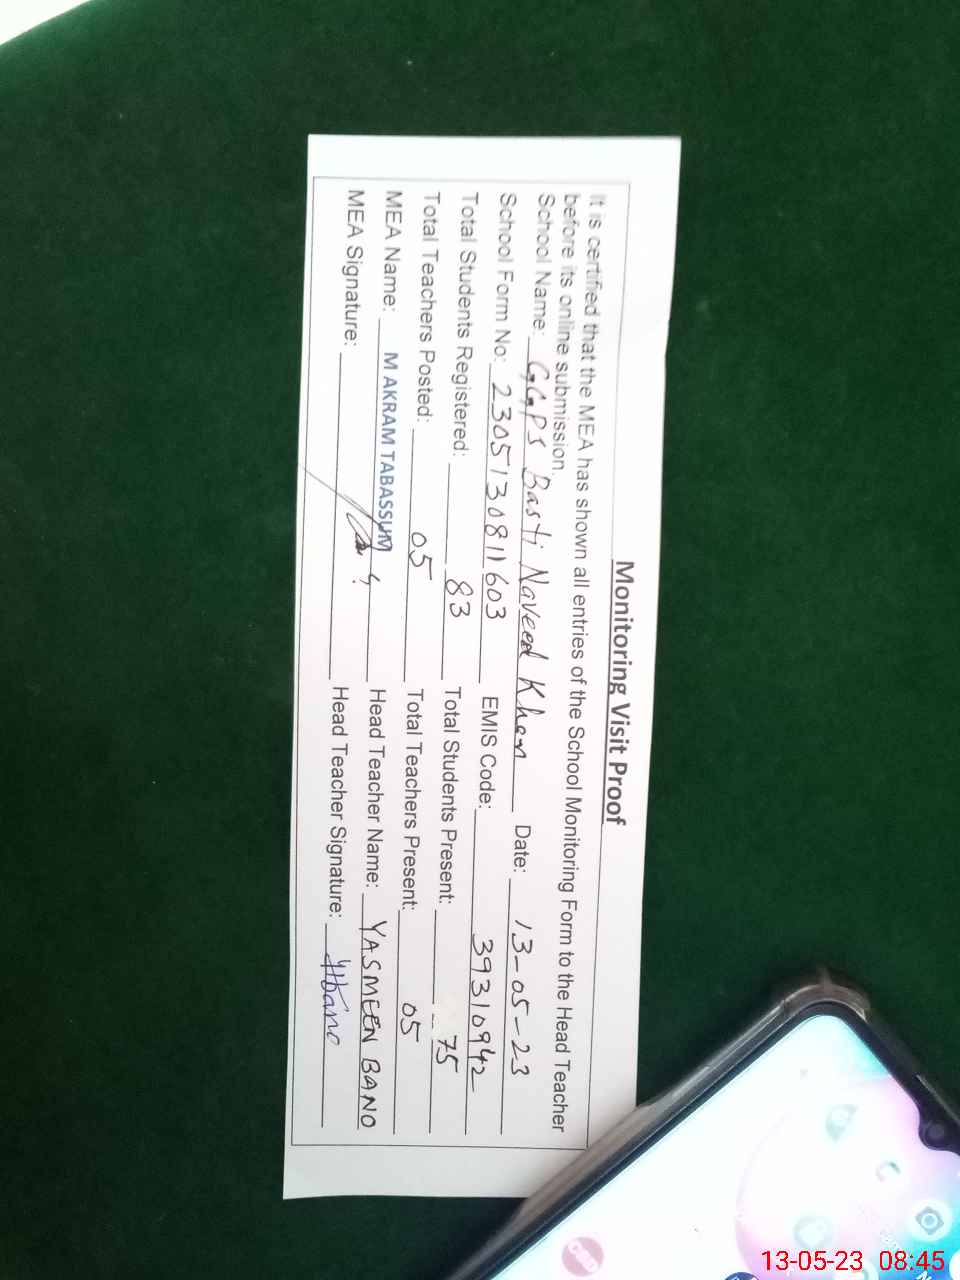 Monitoring Visit Proof
It is certified that the MEA has shown all entries of the School Monitoring Form to the Head Teacher
before its online submission.
School Name: GGPS Basti Naveed Khan Date: 13-05-23
School Form No: 2305130811603 EMIS Code: 39310942
Total Students Registered: 83 Total Students Present: 75
Total Teachers Posted: 05 Total Teachers Present: 05
MEA Name: M AKRAM TABASSUM Head Teacher Name: YASMEEN BANO
MEA Signature: Head Teacher Signature: Ybano
13-05-23 08:45